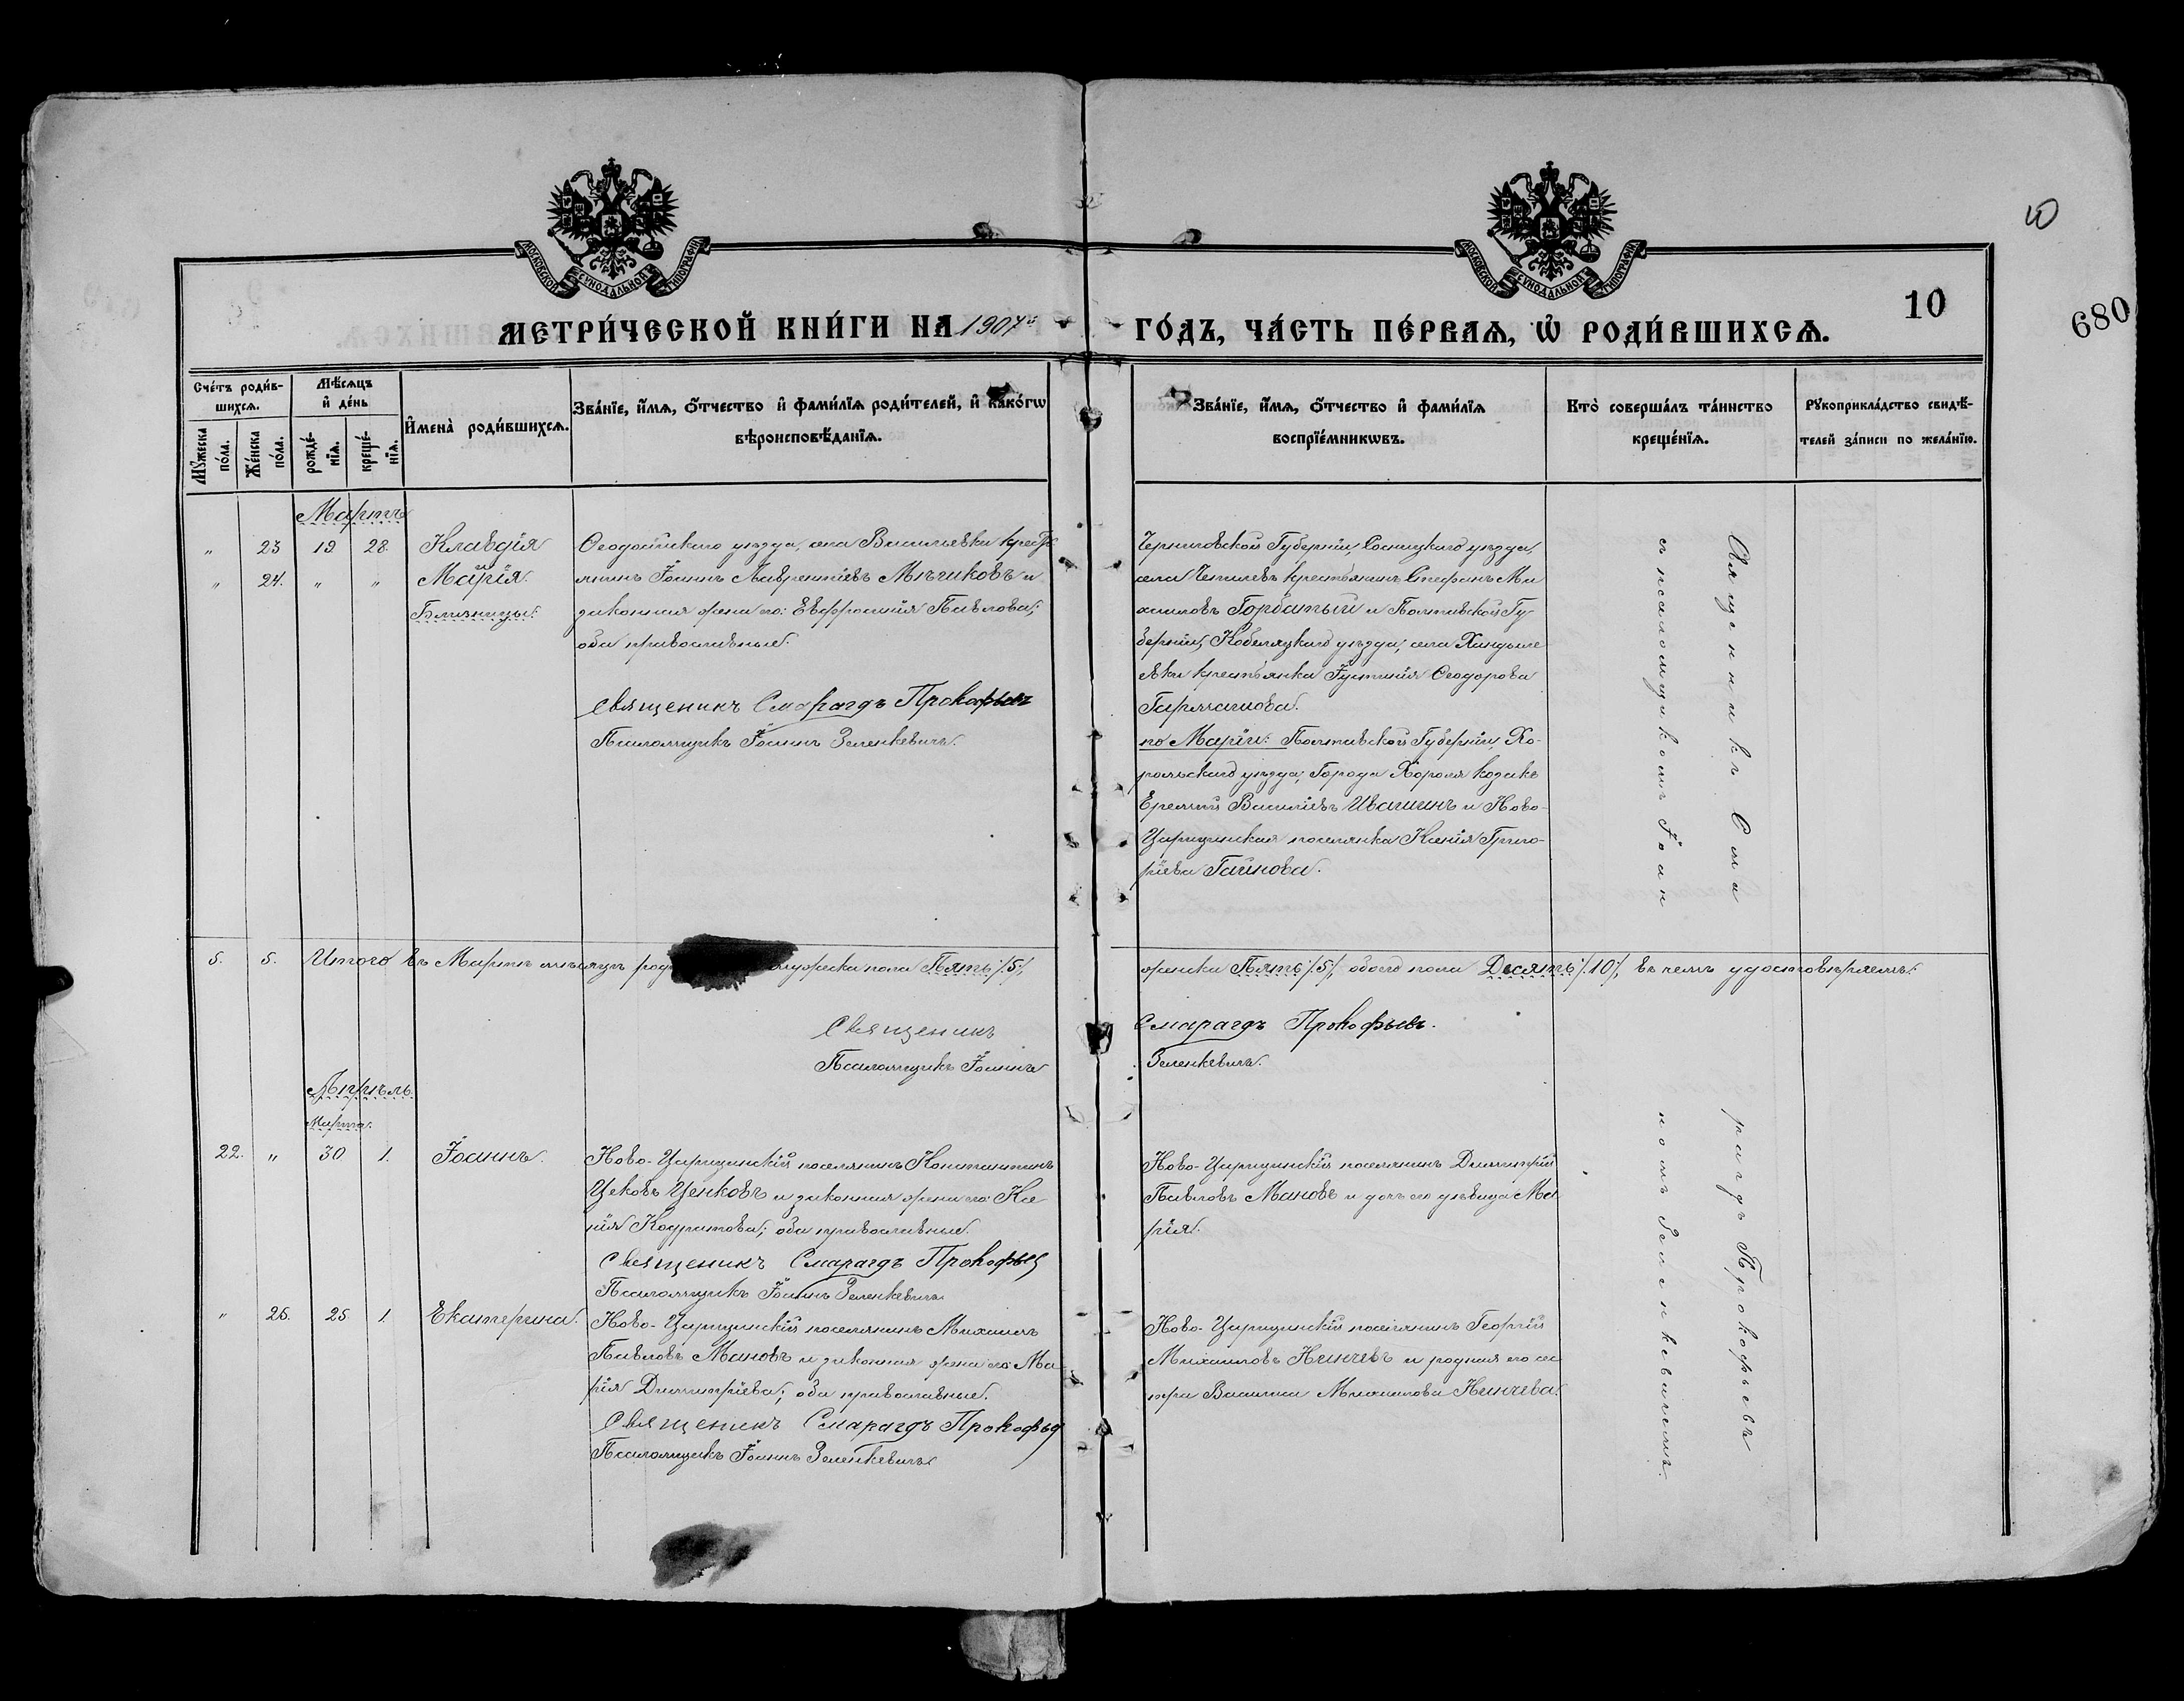 10
680
МОСКОВСКОЙ СѴНОДАЛЬНОЙ ТИПОГРАФІИ
МОСКОВСКОЙ СѴНОДАЛЬНОЙ ТИПОГРАФІИ
10
МЕТРИ́ЧЕСКОЙ КНИ́ГИ НА 1907й
ГО́ДЪ, ЧА́СТЬ ПЕ́РВАѦ, Ѽ РОДИ́ВШИХСѦ.
Сче́тъ роди́в-
шихсѧ.
Мѣ́сѧцъ
и҆ де́нь
И҆мена̀ роди́вшихсѧ.
Зва́нїе, и҆́мѧ, ѻ҆́тчество и҆ фами́лїѧ роди́телей, и҆ како́гѡ
вѣроисповѣ́данїѧ.
Мꙋ́жеска
по́ла.
Же́нска
по́ла.
рожде́-
нїѧ.
креще́-
нїѧ.
Зва́нїе, и҆́мѧ, ѻ҆́тчество и҆ фами́лїѧ
воспрїе́мникѡвъ.
Кто̀ соверша́лъ та́инство
креще́нїѧ.
Рꙋкоприкла́дство свидѣ́-
телей за́писи по жела́нїю.
Мартъ
" 23 19 28. Клавдія
" 24. " " Марія.
Близнецы.
Ѳеодосійскаго уѣзда, села Васильевки крестья
нинъ Іоаннъ Лаврентіевъ Мѣчиковъ и
законная жена его: Евфросинія Павлова;
оба православные.
Священикъ Смарагдъ Прокофьевъ
Псаломщикъ Іоаннъ Зеленкевичъ.
Черниговской Губерніи, Сосницкаго уѣзда,
села крестьянинъ Стефанъ Ми
хаиловъ Горбатый и Полтавской Гу-
берніи, Кобеляцкаго уѣзда, села
евки крестьянка Іустинія Ѳеодорова
по Маріи: Полтавской Губерніи, Хо-
рольскаго уѣзда, Города Хороля козакъ
Еремій Василіевъ Ивашинъ и Ново-
Царицынская поселянка Ксенія Григо-
ріева Гайнова.
Священникъ Сма
рагдъ Прокофьевъ
съ псаломщикомъ Іоан
номъ Зеленкевичемъ.
5. 5. Итого въ Мартѣ мѣсяцѣ род мужеска пола Пять /5/,
женска Пять /5/, обоего пола Десять /10/, въ чемъ удостовѣряемъ:
Священикъ
Смарагдъ Прокофьевъ.
Псаломщикъ Іоаннъ
Зеленкевичъ.
Апрѣль.
Марта.
22. " 30 1. Іоаннъ.
Ново-Царицынскій поселянинъ Константинъ
Цековъ Ценковъ и законная жена его Ксе
нія Кодратова; оба православные.
Священикъ Смарагдъ Прокофьев
Псаломщикъ Іоаннъ Зеленкевичъ
Ново-Царицынскій поселянинъ Димитрій
Павловъ Мановъ и дочь его дѣвица Ма
рія.
" 25. 25. 1. Екатерина.
Ново-Царицынскій поселянинъ Михаилъ
Павловъ Мановъ и законная жена его Ма
рія Димитріева; оба православные.
Священикъ Смарагдъ Прокофьев
Псаломщикъ Іоаннъ Зеленкевичъ
Ново-Царицынскій поселянинъ Георгій
Михаиловъ Ненчевъ и родная его сес
тра Василиса Михаилова Ненчева.